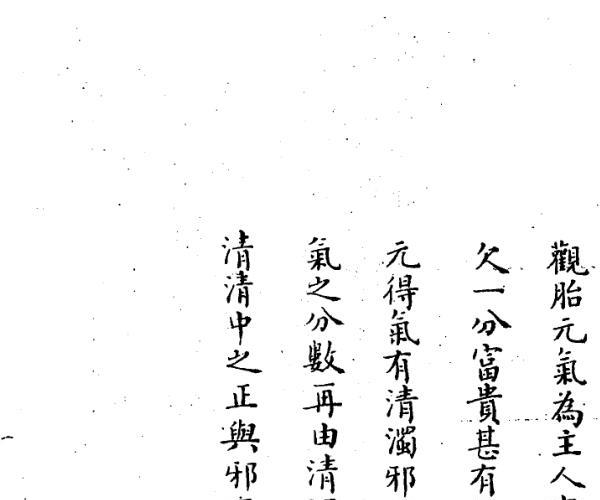 觀胎元氣為主人
欠一分富貴甚有
元得氣有清濁邪
氣之分數再由清
清清中之正與邪